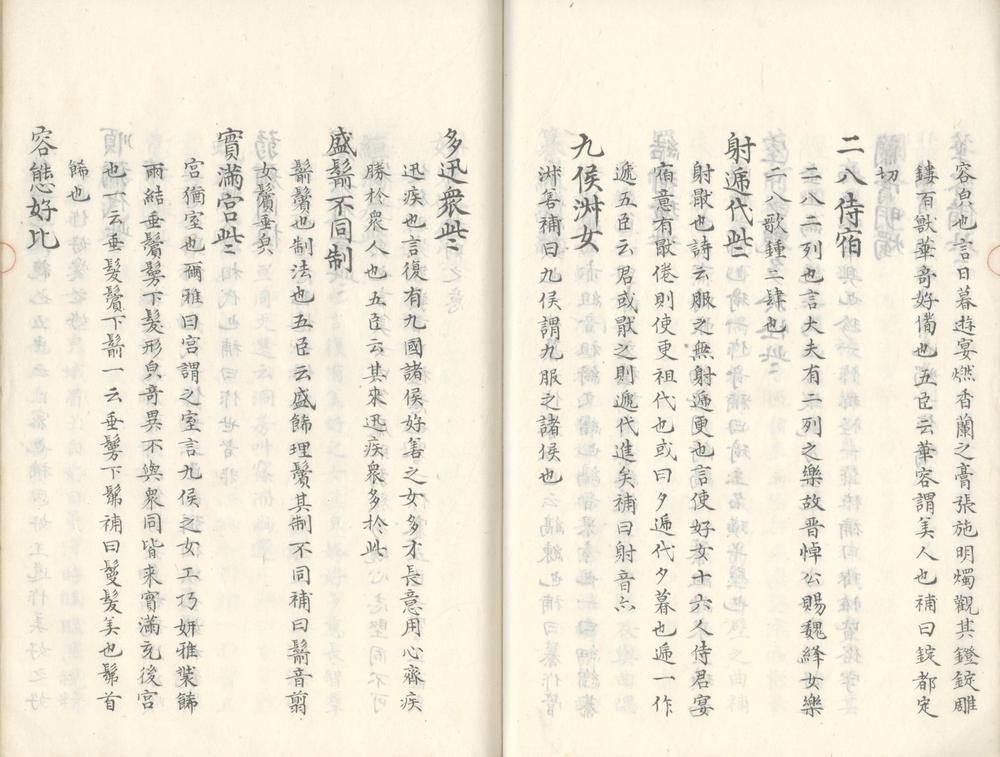 容皃也言日暮遊宴燃香蘭之膏張施明燭觀其鐙錠雕
鏤百獸華奇好備也五臣云華容謂美人也補曰錠都定
切
二八侍宿
二八二列也言大夫有二列之樂故晋悼公賜魏絳女樂
二八歌鍾二肆也
射遞代些〻
射猒也詩云服之無射遞更也言使好女十六人侍君宴
宿意有猒倦則使更相代也或曰夕遞代夕暮也遞一作
遞五臣云君或猒之則遞代進矣補曰射音亦
九侯淑女
淑善補曰九侯謂九服之諸侯也
多迅衆些〻
迅疾也言復有九國諸侯好善之女多才長意用心齊疾
勝於衆人也五臣云其來迅疾衆多於此
盛鬋不同制
鬋鬢也制法也五臣云盛飾理鬢其制不同補曰鬋音剪
女鬢垂皃
實滿宮些〻
宮猶室也爾雅曰宮謂之室言九侯之女工巧妍雅裝飾
兩結垂鬢鬋下髮形皃奇異不與衆同皆來實滿充後宮
也一云垂髮鬢下鬋一云垂鬋下髾補曰鬘髮美也髾首
飾也
容態好比